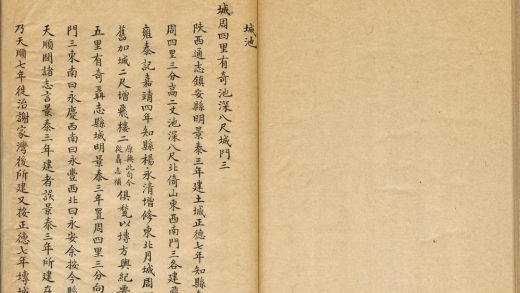 城池
城周四里有奇池深八尺城門三
陝西通志鎮安縣明景泰三年建土城正德七年知縣
周四里三分高二丈池深八尺北倚山東西南門三各建
雍泰記嘉靖四年知縣楊永清增修東北月城周
舊加城二尺增飛樓二原無此句今從聶志補俱甃以塼方輿紀要
五里有奇聶志縣城明景泰三年置周四里三分向
門三東南曰永慶西南曰永豐西北曰永安余按今縣
天順間諸志言景泰三年建者誤景泰三年所建在
乃天順七年徙治謝家灣後所建又按正德七年塼城